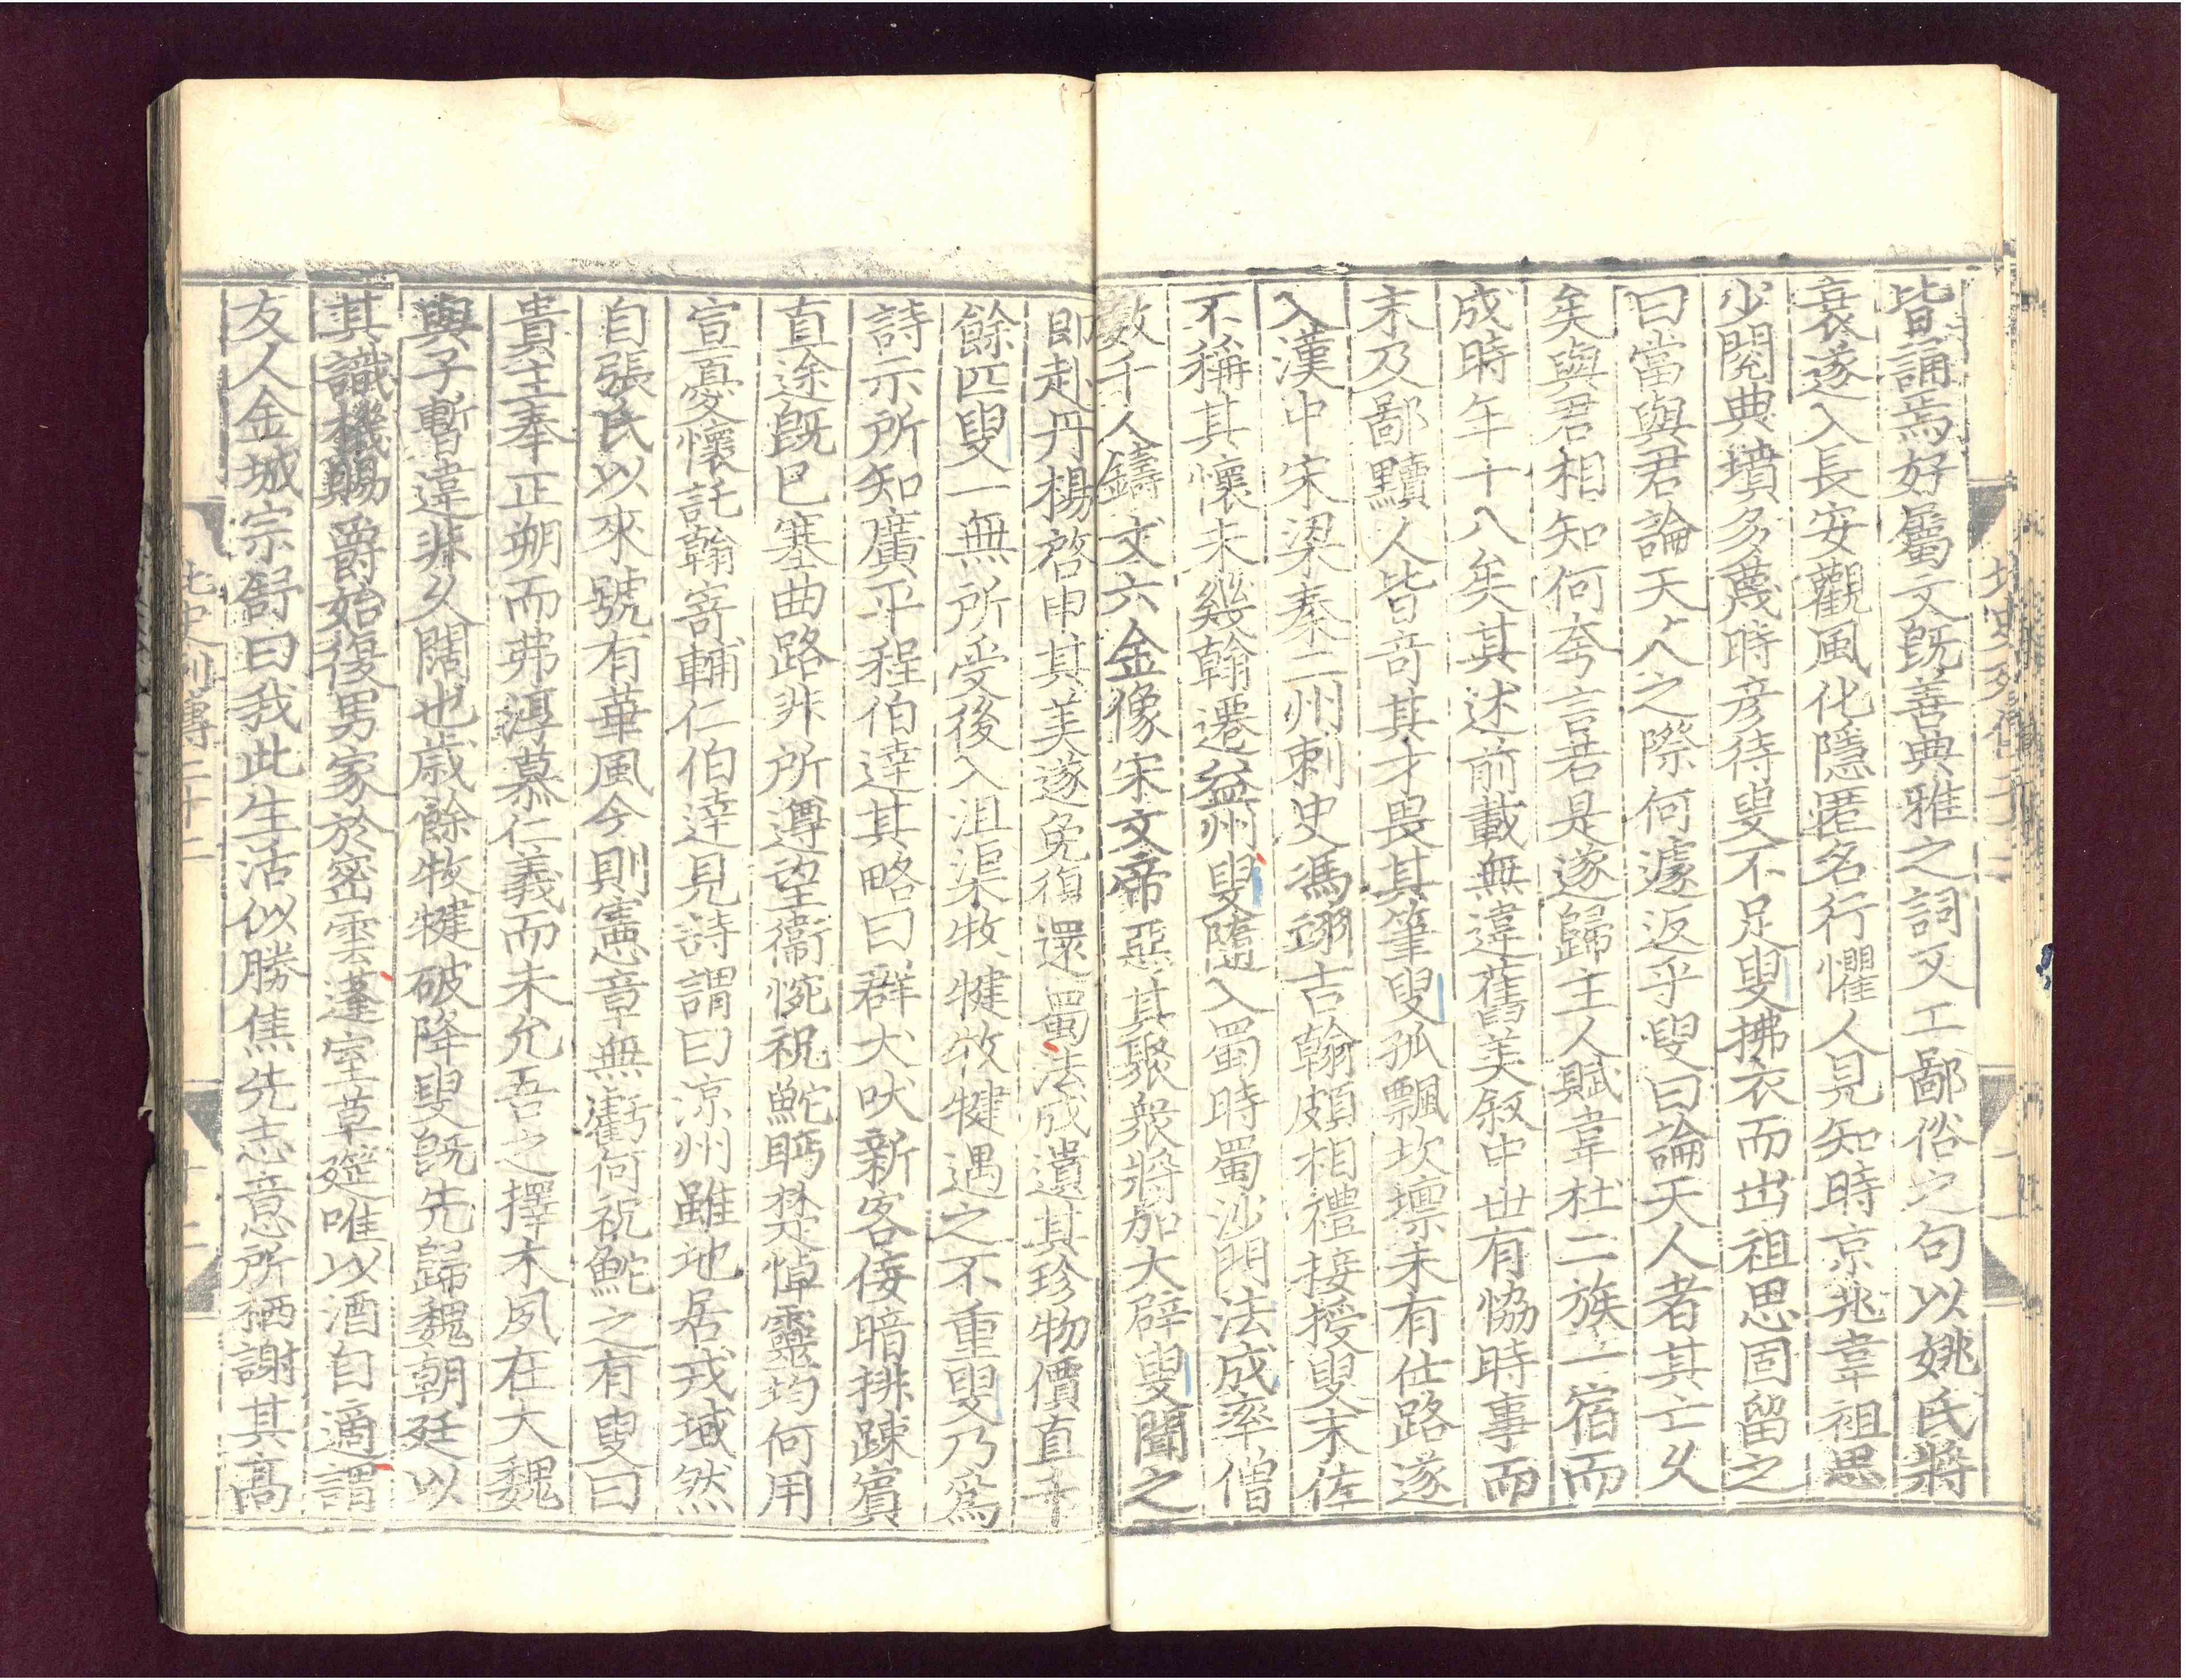 皆誦焉好屬文旣善典雅之詞又工鄙俗之句以姚氏將
衰遂入長安觀風化隱匿名行懼人見知時京兆韋祖思
少閱典墳多蔑時彦待叟不足叟拂衣而出祖思固留之
曰當與君論天人之際何遽返乎叟曰論天人者其亡久
矣與君相知何夸言若是遂歸主人賦韋杜二族一宿而
成時年十八矣其述前載無違舊美叙中世有恊時事而
末及鄙黷人皆竒其才畏其筆叟孤飄坎壈未有仕路遂
入漢中宋梁秦二州刺史馮翊吉翰頗相禮接授叟末佐
不稱其懷未幾翰遷益州叟隨入蜀時蜀沙門法成率僧
數千人鑄丈六金像宋文帝惡其聚衆將加大辟叟聞之
即赴丹楊啓申其美遂免復還蜀法成遺其珍物價直千
餘匹叟一無所受後入沮渠牧犍牧犍遇之不重叟乃爲
詩示所知廣平程伯達其略曰群犬吠新客佞暗排踈賓
直途旣已塞曲路非所遵望衛惋祝鮀眄楚悼靈均何用
宣憂懷託翰寄輔仁伯達見詩謂曰凉州雖地居戎域然
自張氏以來號有華風今則憲章無虧何祝鮀之有叟曰
貴主奉正朔而弗淳慕仁義而未允吾之擇木夙在大魏
與子暫違非久闊也歳餘牧犍破降叟旣先歸魏朝廷以
其識機賜爵始復男家於密雲蓬室草筵唯以酒自適謂
友人金城宗舒曰我此生活似勝焦先志意所栖謝其高
北史列傳二十二
十二